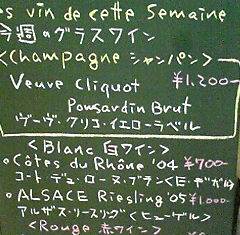 es vin de cette Semaine
今週のグラスワイン
<Champagne シャンパン>
Veuve Cliquot ¥1.200-
Ponsardin Brut
ヴーヴ・クリコ・イエローラベル
<Blanc 白ワイン>
○ Côtes du Rhône '04 ¥700-
コート・デュ・ローヌ・ブラン(E・ギガル)
○ ALSACE Riesling '05 ¥1.000-
アルザス・リースリング<ヒューゲル>
<Rouge 赤ワイン>